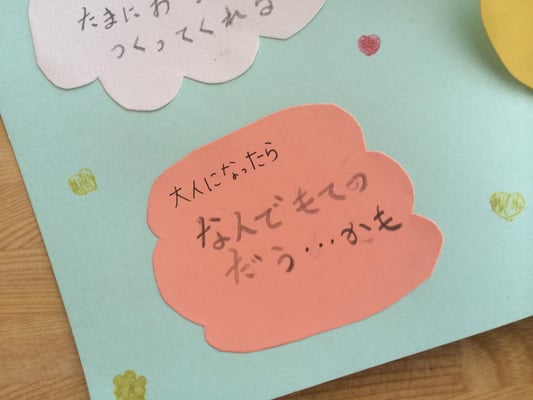 たまにお
つくってくれる
大人になったら
なんでもての
だう…かも